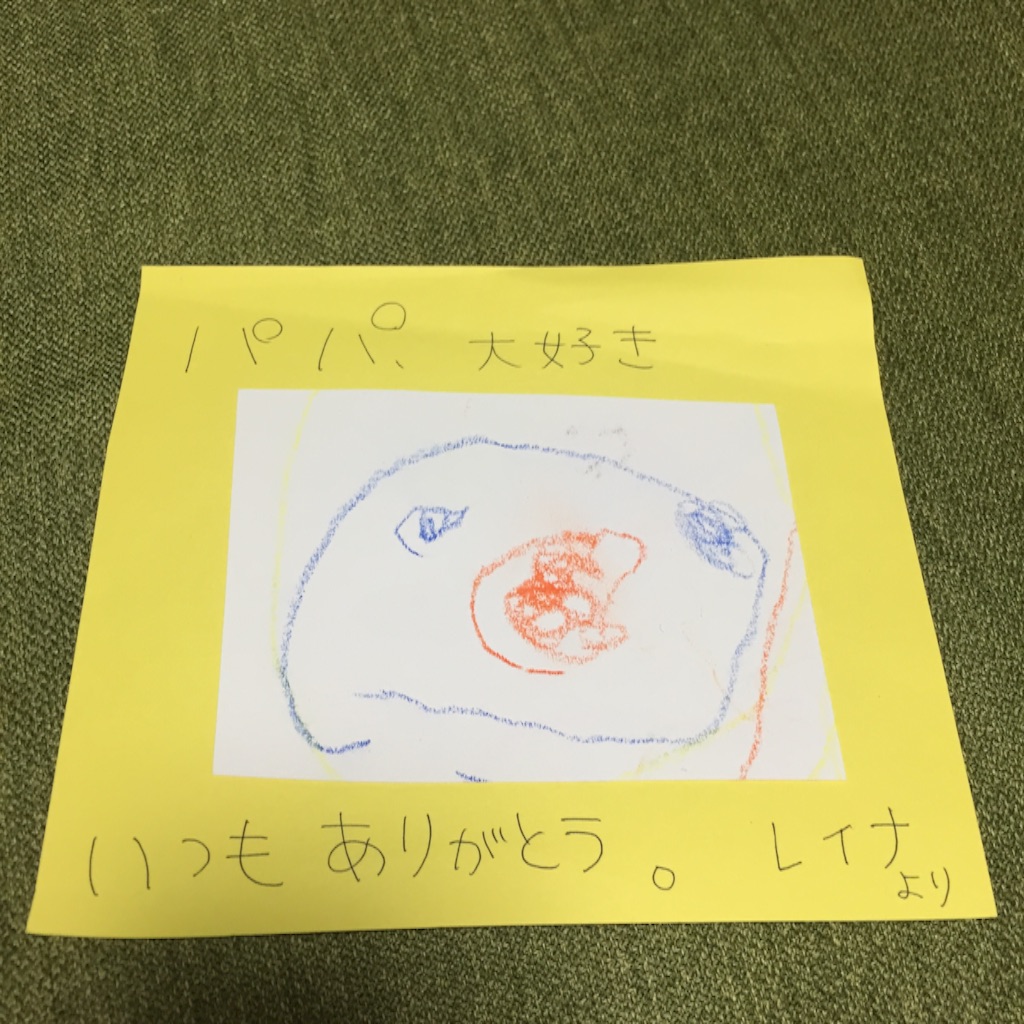 パパ、大好き
いつもありがとう。 レイナ
より